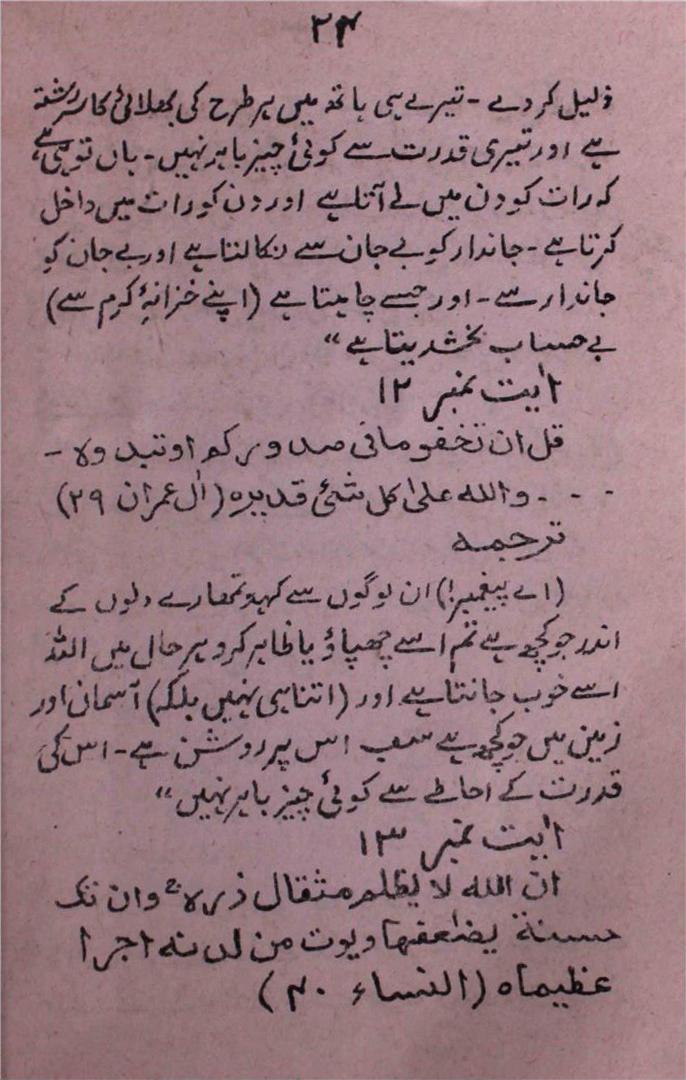 ۲۴
ذلیل کر دے ۔ تیرے ہی ہاتھ میں ہر طرح کی بھلائی کا سررشتہ
ہے اور تیری قدرت سے کوئی چیز باہر نہیں ۔ ہاں تو ہی ہے
کہ رات کو دن میں لے آتا ہے اور دن کو رات میں داخل
کرتا ہے ۔ جاندار کو بے جان سے نکالتا ہے اور بے جان کو
جاندار سے ۔ اور جسے چاہتا ہے (اپنے خزانۂ کرم سے)
بے حساب بخشدیتا ہے “
اٰیت نمبر ۱۲
قل ان تخفو مافی صدورکم او تبدوہ ۔
۔ ۔ ۔ واللہ علیٰ کل شئ قدیرہ (اٰل عمران ۲۹)
ترجمہ
(اے پیغمبر!) ان لوگوں سے کہدو تمھارے دلوں کے
اندر جو کچھ ہے تم اسے چھپاؤ یا ظاہر کرو ہر حال میں اللہ
اسے خوب جانتا ہے اور (اتنا ہی نہیں بلکہ) آسمان اور
زمین میں جو کچھ ہے سب اس پر روشن ہے ۔ اس کی
قدرت کے احاطے سے کوئی چیز باہر نہیں “
اٰیت نمبر ۱۳
ان اللہ لا یظلم مثقال ذرہ ج وان تک
حسنة یضٰعفہا ویوت من لدنہ اجرا
عظیماہ (النساء ۴۰)